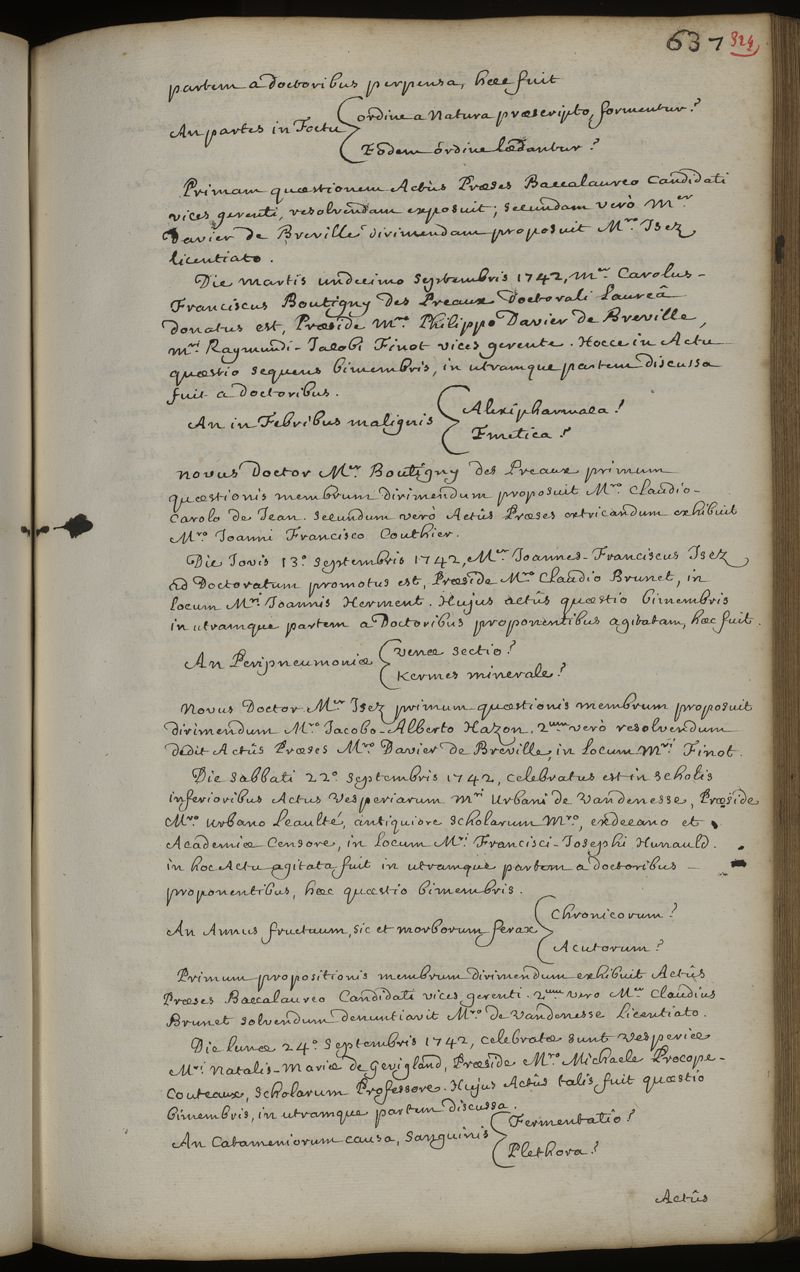 637 324
partem a doctoribus perpensa, hæc fuit
An partes in Foetu { ordine a Natura præscripto, formentur?
Eodem ordine lædantur?
Primam quæstionem Actûs Præses Baccalaureo Candidati
vices gerenti, resolvendam exposuit; secundam verò Mer
Davier de Breville dirimendam proposuit Mro Isez
licentiato.
Die martis undecimo Septembris 1742, mer Carolus-
Franciscus Boutigny Des Preaux Doctorali Laureâ
donatus est, Præside Mro Philippo Davier de Breville,
Mri Raymundi-Jacobi Finot vices gerente. Hocce in Actu
quæstio sequens bimembris, in utramque partem discussa
fuit a doctoribus.
An in Febribus malignis { Alexipharmaca?
Emetica?
novus Doctor Mer Boutigny des Preaux primum
quæstionis membrum dirimendum proposuit Mro Claudio-
Carolo de Jean. Secundum verò Actûs Præses extricandum exhibuit
Mro Joanni Francisco Couthier.
Die Jovis 13º Septembris 1742, Mer Joannes-Franciscus Isez
ad Doctoratum promotus est, Præside Mro Claudio Brunet, in
locum Mri Joannis Herment. Hujus actûs quæstio bimembris
in utramque partem a Doctoribus proponentibus agitatam, hæc fuit.
An Peripneumoniæ { venæ sectio?
Kermes minerale?
Novus Doctor Mer Isez primum quæstionis membrum proposuit
dirimendum Mro Jacobo-Alberto Hazon. 2um verò resolvendum
dedit Actûs Præses Mro Davier de Breville, in locum Mri Finot.
Die Sabbati 22º Septembris 1742, celebratus est in scholis
inferioribus Actus Vesperiarum Mri Urbani de Vandenesse, Præside
Mro Urbano Leaulté, antiquiore scholarum Mro, exdecano et
Academiæ Censore, in locum Mri Francisci-Josephi Hunauld.
in hoc Actu agitata fuit in utramque partem a doctoribus
proponentibus, hæc quæstio bimembris.
An Annus fructuum, sic et morborum ferax { Chronicorum?
Acutorum?
Primum propositionis membrum dirimendum exhibuit Actûs
Præses Baccalaureo Candidati vices gerenti. 2um vero Mer Claudius
Brunet solvendum denuntiavit Mro de Vandenesse Licentiato.
Die lunæ 24º Septembris 1742, celebratæ sunt Vesperiæ
Mri Natalis-Mariæ de Gevigland, Præside Mro Michaele Procope-
Couteaux, Scholarum Professore. Hujus Actûs talis fuit quæstio
bimembris, in utramque partem discussa.
An Catameniorum causa, Sanguinis { Fermentatio?
Plethora?
Actûs